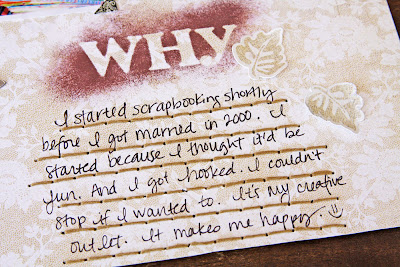 WHY
I started scrapbooking shortly
before I got married in 2000. I
started because I thought it'd be
fun. And I got hooked. I couldn't
stop if I wanted to. It's my creative
outlet. It makes me happy. :)